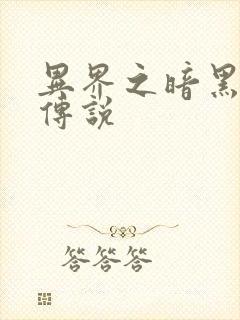 異界之暗黑
傳說
答答答